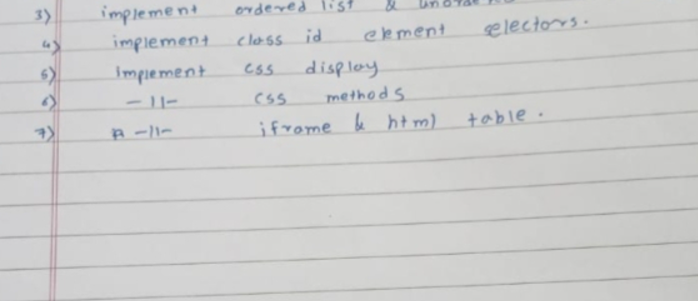 3) implement ordered list &
4) implement class id element selectors.
5) Implement css display
6) -11- css methods
7) -11- iframe & html table.